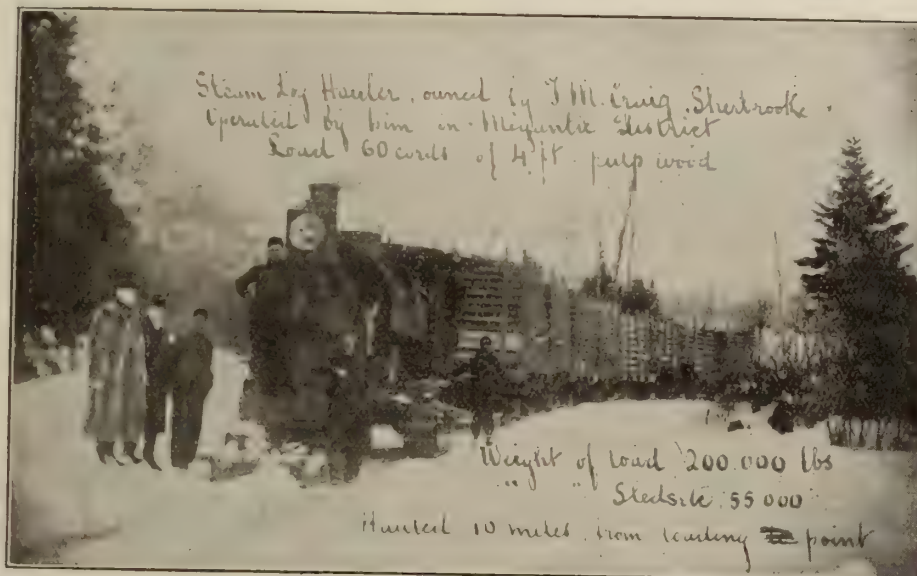 Steam Log Hauler, owned by T M. Craig, Sherbrooke.
Operated by him in Megantic District
Load 60 cords of 4 ft. pulp wood
Weight of Load 200.000 lbs
" " 55 000
Hauled 10 miles from loading point